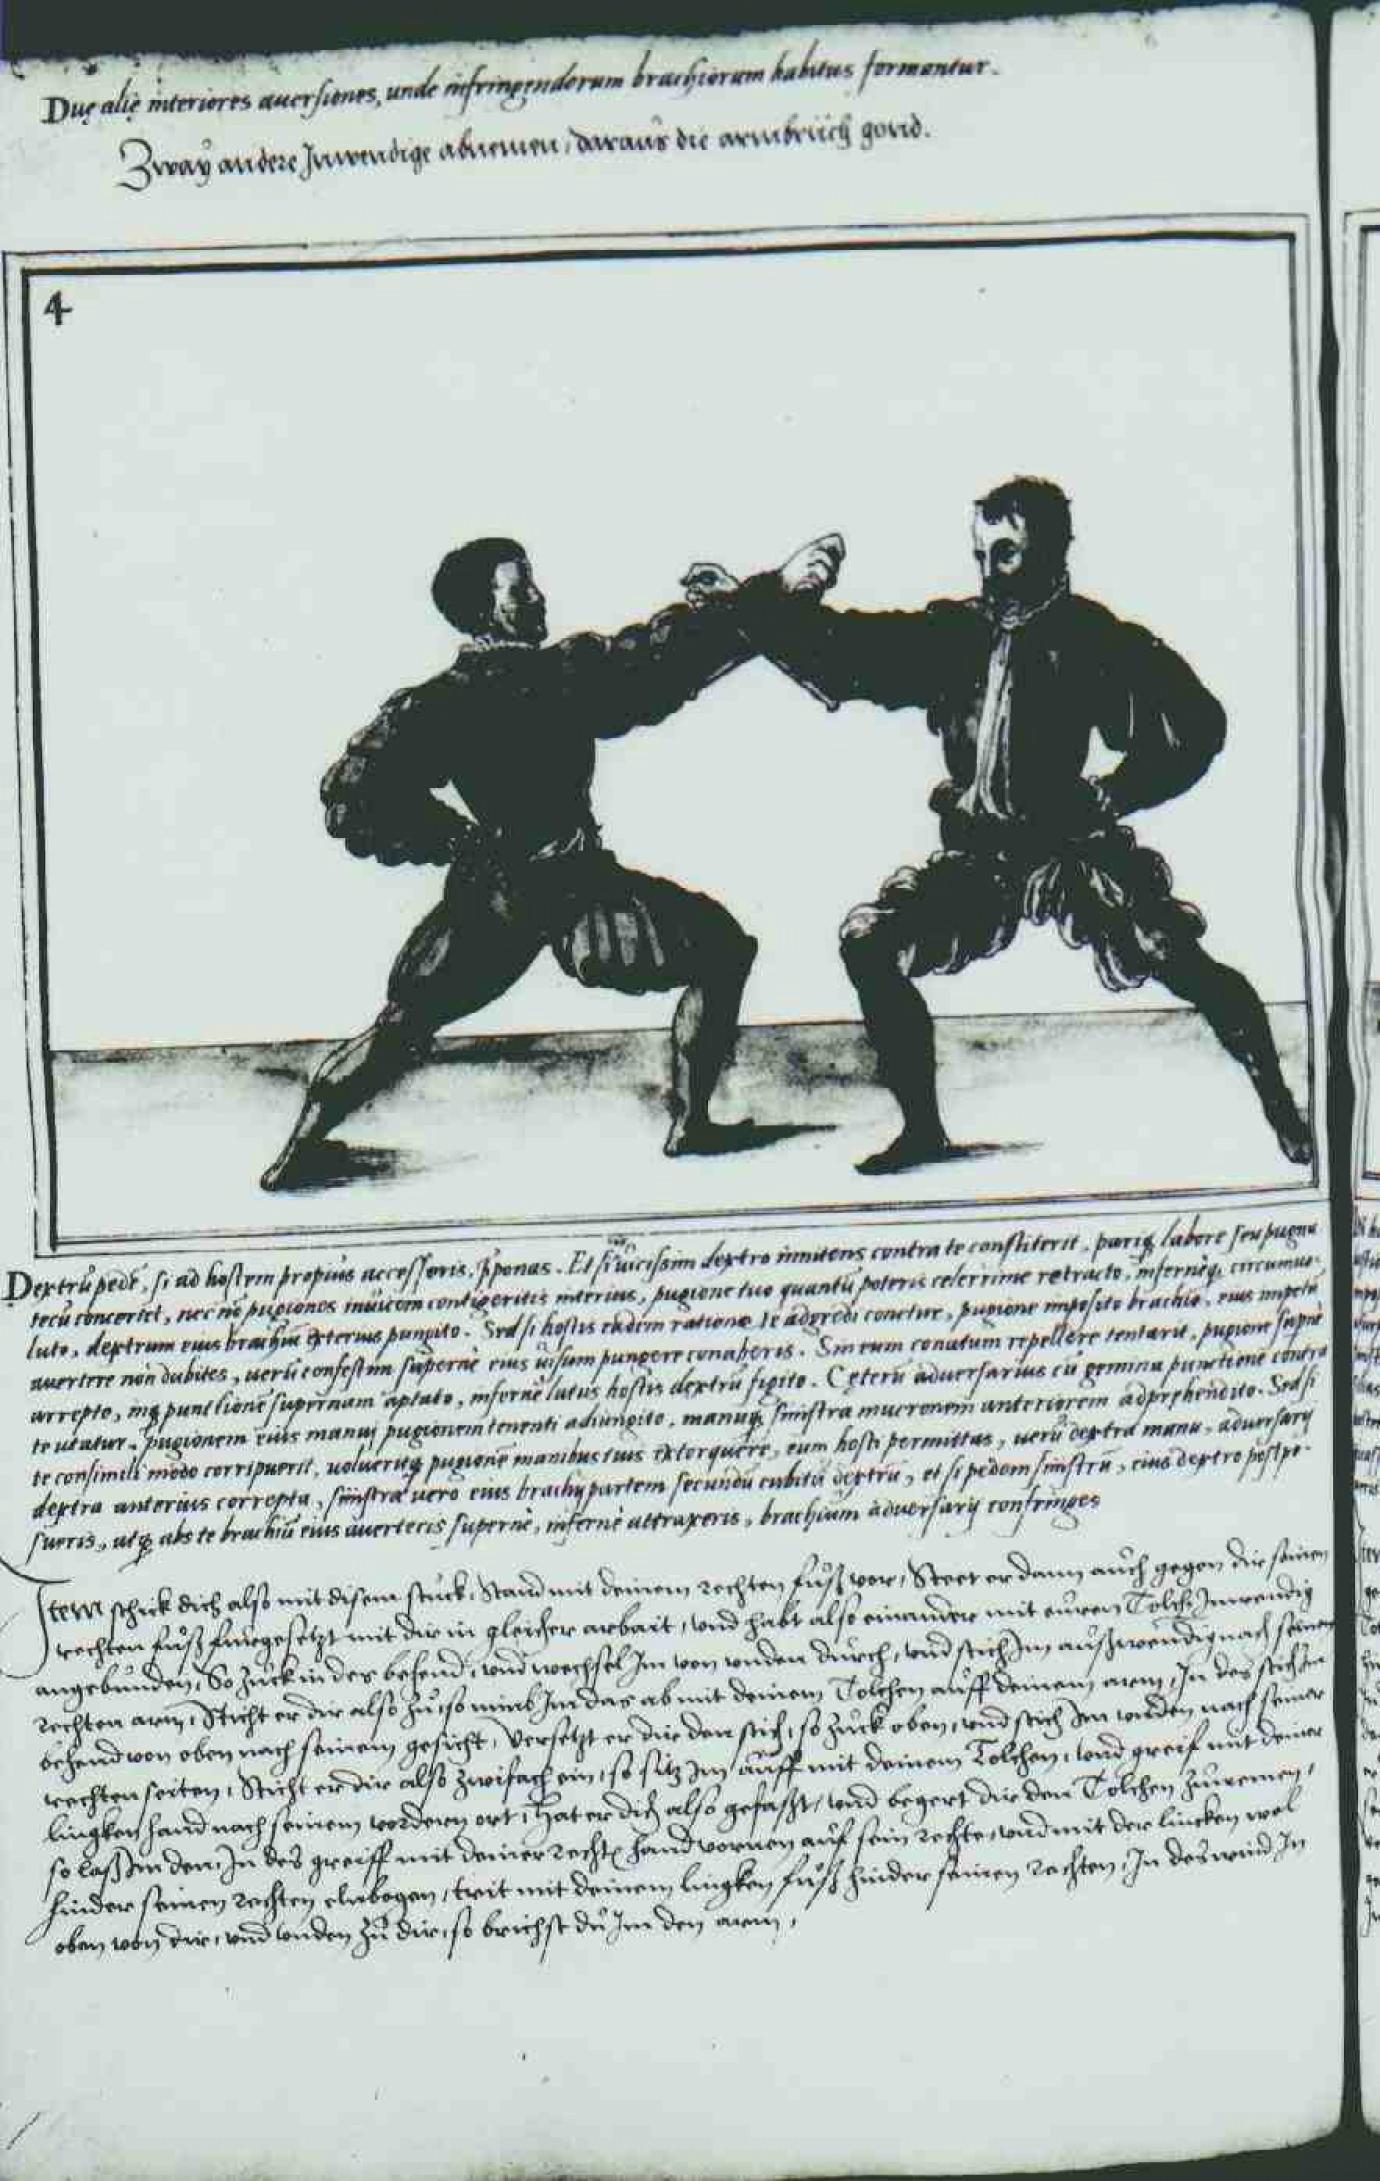 Duę alię interiores auersiones, unde infringendorum brachiorum habitus formantur.
Zway andere Inwendige abnemen, daraus die armbrüch gond.
4
Dextrũ pedẽ, si ad hostem propius accesseris, p̃ponas. Et si is uicissim dextro innitens contra te constiterit, pariq; labore seu pugna
tecũ concertet, nec nõ pugiones inuicem contigeritis interius, pugione tuo quantũ poteris celerrime retracto, inferneq; circumuo-
luto, dextrum eius brachiũ exterius pungito. Sed si hostis eadem ratione te adgredi conetur, pugione imposito brachio, eius impetũ
auertere non dubites, uerũ confestim supernè eius uisum pungere conaberis. Sin eum conatum repellere tentarit, pugione supnè
arrepto, inq; punctionẽ supernam aptato, infernè latus hostis dextrũ figito. Cęterũ aduersarius cũ gemina punctione contra
te utatur, pugionem eius manui pugionem tenenti adiungito, manuq; sinistra mucronem anteriorem adprehendito. Sed si
te consimili modo corripuerit, uolueritq; pugionẽ manibus tuis extorquere, eum hosti permittas, uerũ dextra manu, aduersarij
dextra anterius correpta, sinistra uero eius brachij partem secundũ cubitũ dextrũ, et si pedem sinistrũ, eius dextro postpo-
sueris, atq; abs te brachiũ eius auerteris supernè, infernè attraxeris, brachium aduersarij confringes
Item schick dich also mit disem stuck, Stand mit deinem rechten fuß vor, Steet er dann auch gegen dir seinen
rechten fuß furgesetzt mit dir in gleicher arbait, vnd habt also einander mit euren Tolchen Inwendig
angebunden, So zuck in des behend, vnd wechsel Im von vnden durch, vnd stich Im außwendig nach seinem
rechten arm, Sticht er dir also zu, so nimb Im das ab mit deinem Tolchen auff deinem arm, In des stich Im
behend von oben nach seinem gesicht, Versetzt er dir den stich, so zuck oben, vnd stich Im vnden nach seiner
rechten seiten, Sticht er dir also zwifach ein, so sitz Im auff mit deinem Tolchen, vnd greif mit deiner
lingken hand nach seinem vordern ort, Hat er dich also gefaßt, vnd begert dir den Tolchen zunemen,
so laß Im den, In des greiff mit deiner rechten hand vornen auf sein rechte, vnd mit der lincken wol
hinder seinen rechten elnbogen, trit mit deinem lingken fuß hinder seinen rechten, In des wind In
oben von dir, vnd vnden zu dir, so brichst du Im den arm,